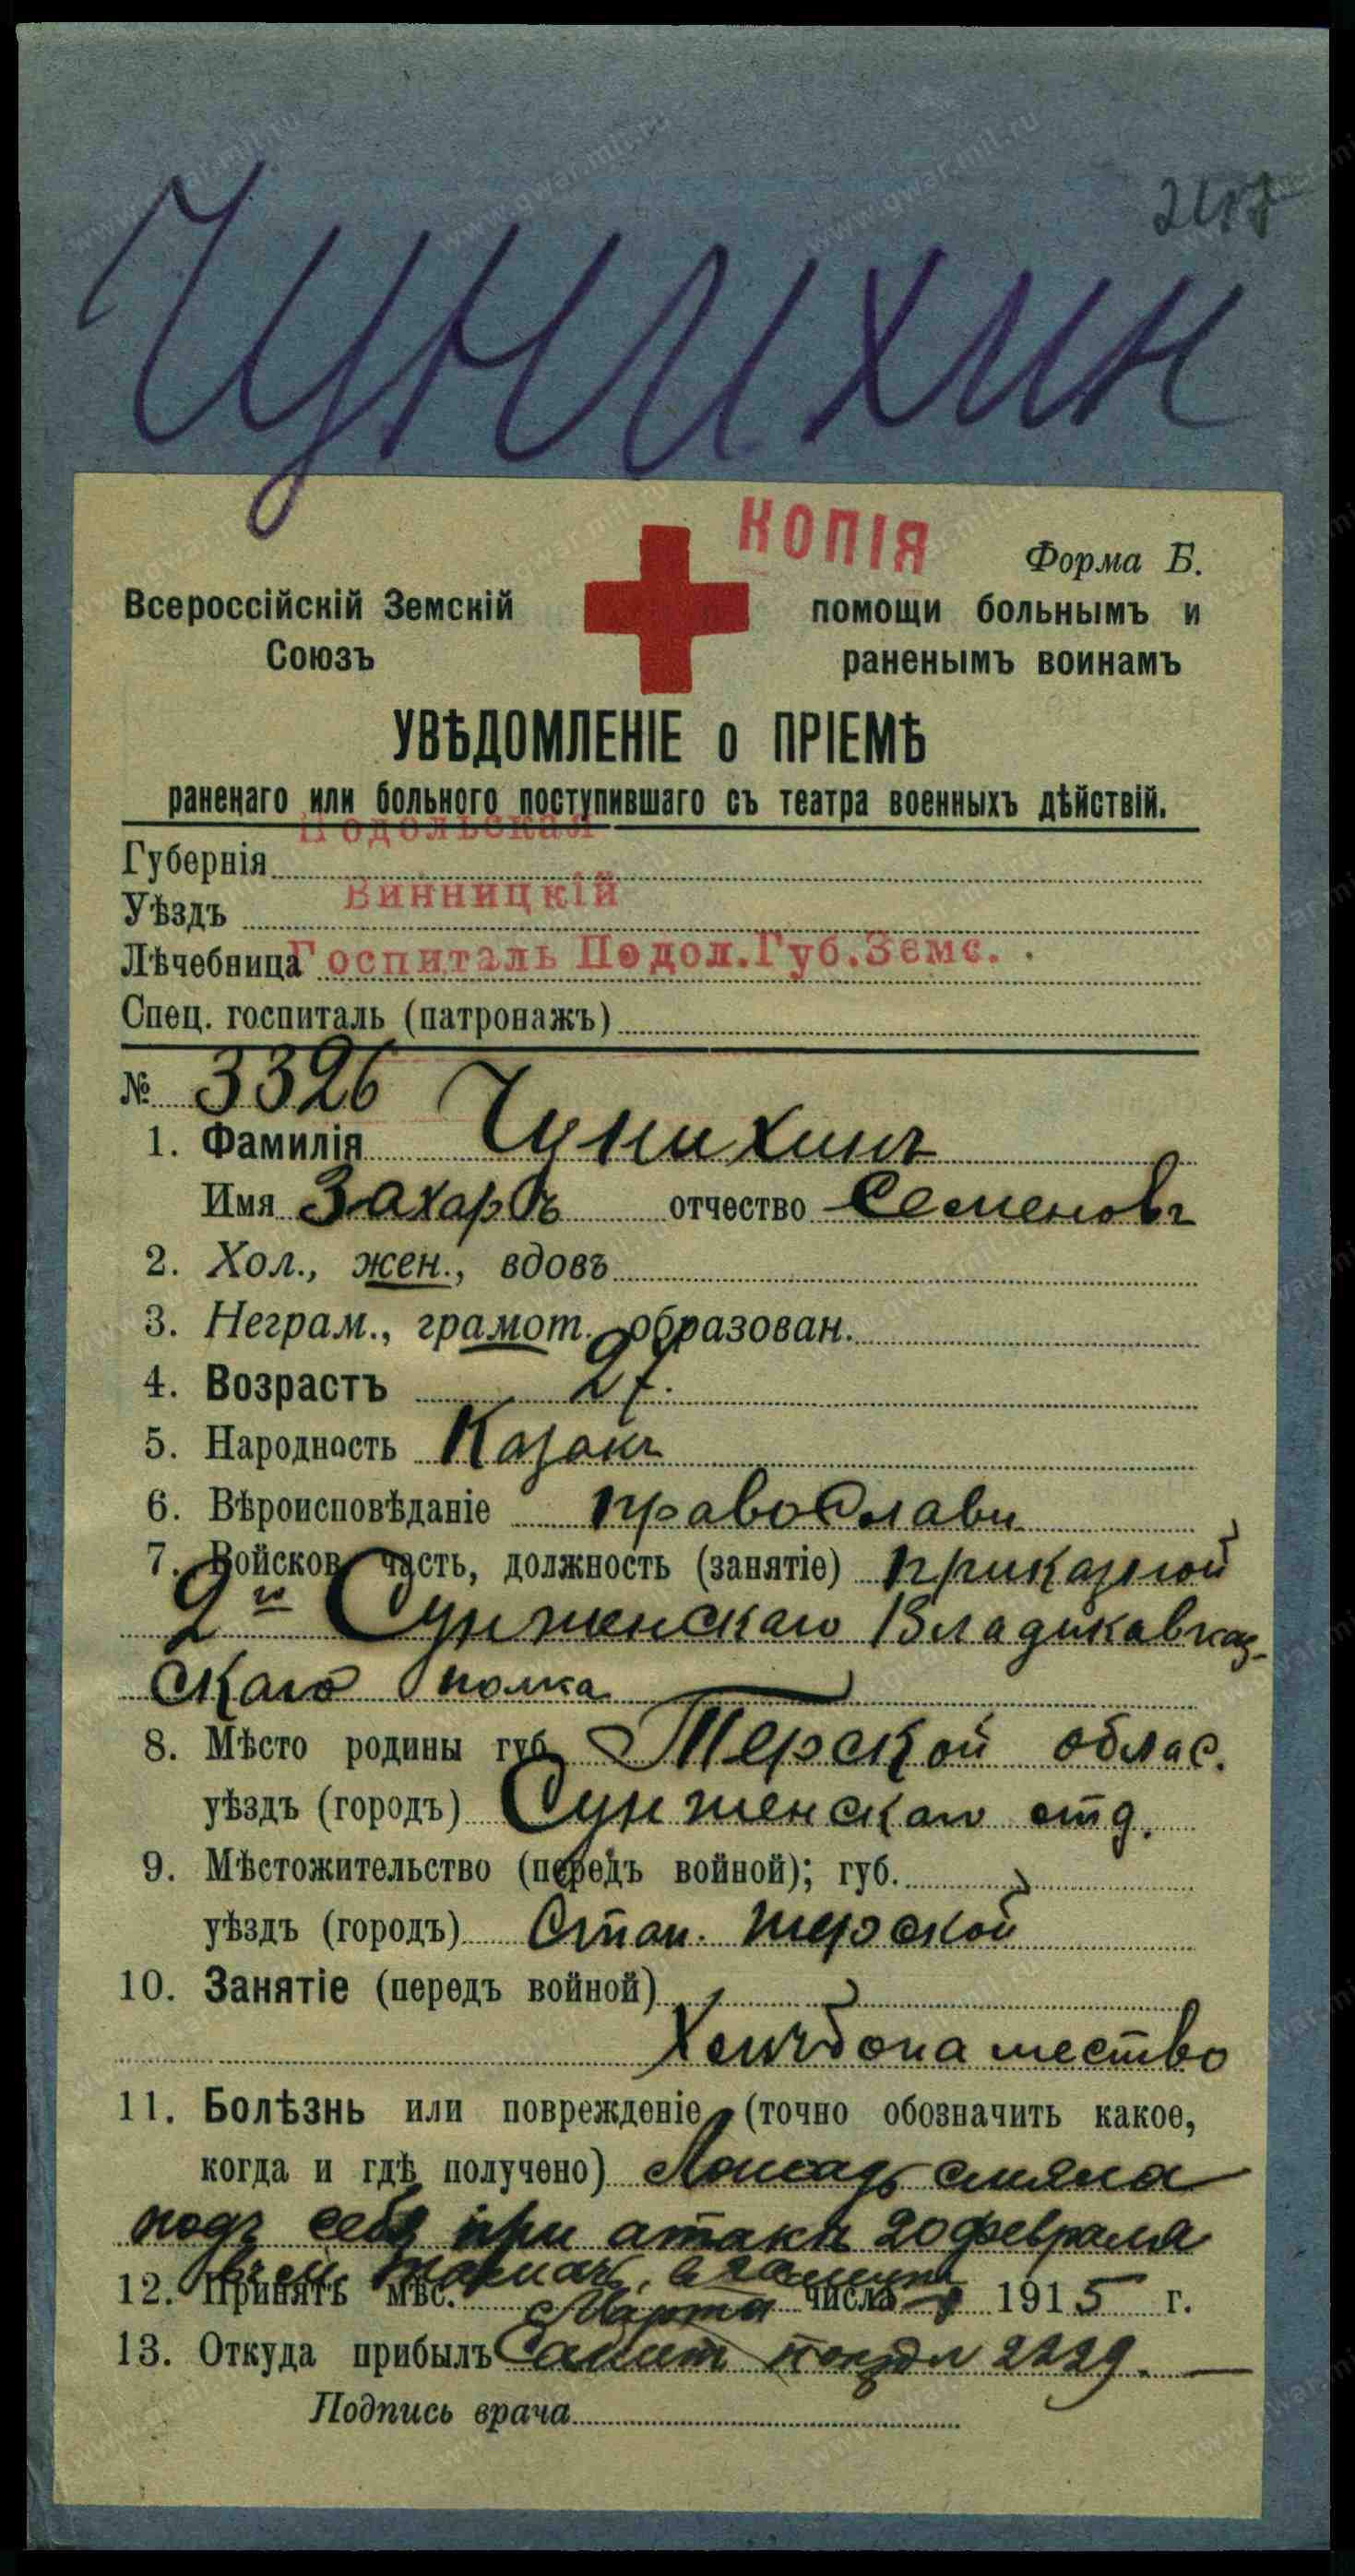 Чунихин
КОПІЯ
Форма Б.
Всероссійскій Земскій
Союзъ
помощи больнымъ и
раненымъ воинамъ
УВѢДОМЛЕНІЕ о ПРІЕМѢ
раненаго или больного поступившаго съ театра военныхъ дѣйствій.
Губернія Подольская
Уѣздъ Винницкій
Лѣчебница Госпиталь Подол.Губ.Земс.
Спец. госпиталь (патронажъ)
№ 3326
1. Фамилія Чунихинъ
Имя Захаръ отчество Семеновъ
2. Хол., жен., вдовъ
3. Неграм., грамот. образован.
4. Возрастъ 27.
5. Народность Казакъ
6. Вѣроисповѣданіе православн
7. Войсков. часть, должность (занятіе) приказной
2го Сунженскаго Владикавказ-
скаго полка
8. Мѣсто родины губ. Терской облас.
уѣздъ (городъ) Сунженскаго отд.
9. Мѣстожительство (передъ войной); губ.
уѣздъ (городъ) Стан. Терской
10. Занятіе (передъ войной)
Хлѣбопашество
11. Болѣзнь или поврежденіе (точно обозначить какое,
когда и гдѣ получено) Лошадь смяла
подъ себя при атакѣ 20 февраля
12. Принятъ мѣс. Марта числа 1915 г.
13. Откуда прибылъ Санит поѣзд
Подпись врача
www.gwar.mil.ru